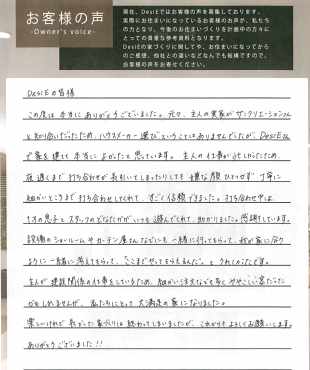 お客様の声
-Owner's voice-
現在、DesiEではお客様の声を募集しております。
実際にお住まいになっているお客様の声が、私たち
の力となり、今後のお住まいづくりを計画中の方々に
とっての貴重な参考資料となります。
DesiEの家づくりに関してや、お住まいになってから
のご感想、他社との違いなどなんでも結構ですので、
お客様の声をお寄せください。
DesiEの皆様
この度は本当にありがとうございました。元々、主人の実家がサンクリエーションさん
と知り合いだったため、ハウスメーカー選びということはありませんでしたが、DesiEさん
で家を建てて本当によかったと思っています。主人の仕事が忙しかったため、
夜遅くまで打ち合わせが長引いてしまったりしても嫌な顔ひとつせず丁寧に
細かいところまで打ち合わせしてくれて、すごく信頼できました。打ち合わせ中は、
1才の息子とスタッフのどなたかがいつも遊んでくれて、助かりました。感謝しています。
設備のショールームやカーテン屋さんなどにも一緒に行ってもらって、我が家に合う
ように一緒に考えてもらって、"ここまでやってもらえるんだ"とうれしかったです。
主人が建設関係の仕事をしているため、細かい注文なども多くややこしい客だった
かもしれませんが、私たちにとって大満足の家になりました。
楽しいけれど長かった家づくりは終わってしまいましたが、これからもよろしくお願いします。
ありがとうございました!!